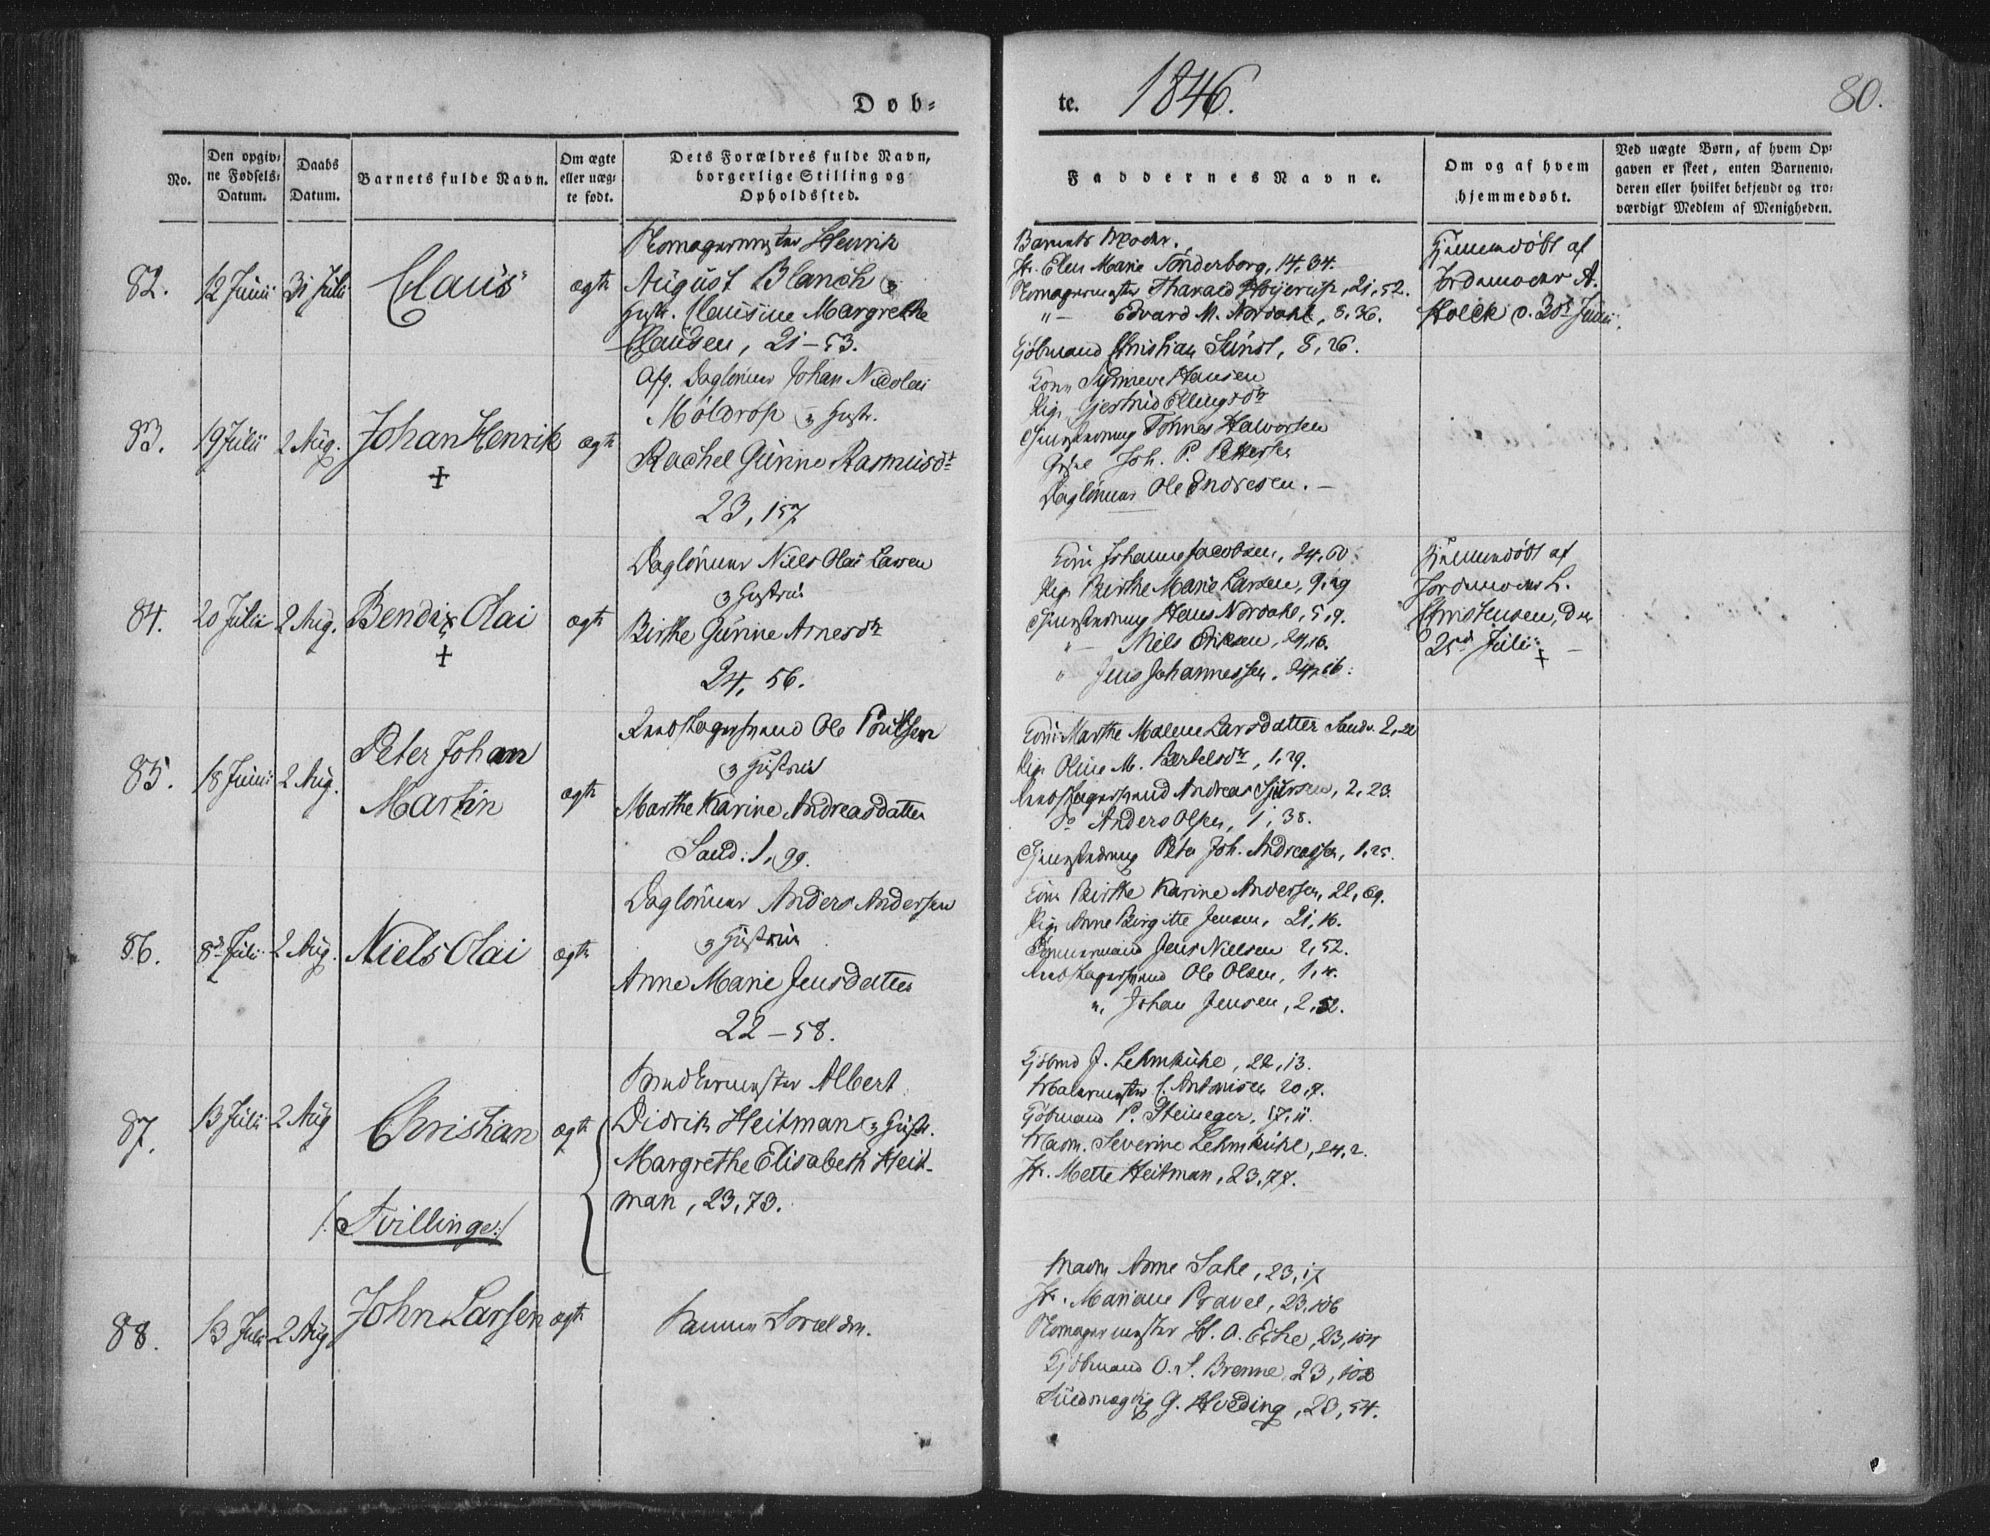 Døb-
te. 1846.
80.
No.
Den opgiv-
ne Fødsels-
Datum.
Daabs
Datum.
Barnets fulde Navn.
Om ægte
eller uæg-
te født.
Dets Forældres fulde Navn,
borgerlige Stilling og
Opholdssted.
Faddernes Navne.
Om og af hvem
hjemmedøbt.
Ved uægte Børn, af hvem Op-
gaven er skeet, enten Barnemo-
deren eller hvilket bekjendt og tro-
værdigt Medlem af Menigheden.
82.
12 Junii
31 Julii
Claus
ægte
Skomagermester Henrik
August Blanch
Hustr. Clausine Margrethe
Clausen, 21-53.
Barnets Moder.
Jfr. Elen Marie Sønderborg, 14, 34.
Skomagermester Tharald Høyerup, 21, 52.
" — Edvard M. Nordahl, 8, 36.
Kjøbmand Christian Sundt, 8, 26.
Hjemmedøbt af
Jordemoder A.
Holck d. 30t Junii.
83.
19 Julii
2 Aug.
Johan Henrik
+
ægte
Afg. Daglønner Johan Nicolai
Møldrop & Hustr.
Rachel Gurine Rasmusdt
23, 157
Kone Hansen
Pig. Gjertrud Ellingsdtr
Tønnes Halvorsen
Joh. P. Pettersen
Daglønner Ole Endresen. —
84.
20 Julii
2 Aug.
Bendix Olai
+
ægte
Daglønner Niels Olai Larsen
& Hustrue
Birthe Gurine Arnesdtr
24, 56.
Kone Johanne Jacobsen, 24, 60.
Pig. Birthe Marie Larsen, 9, 29
Hans Nordahl, 5, 9.
" — Niels Eriksen, 24, 16.
" Jens Johannessen, 24, 56.
Hjemmedøbt af
Jordemoder L.
Christensen, den
25d Julii —
+
85.
18 Junii
2 Aug.
Peter Johan
Martin
ægte
Ole Poulsen
& Hustrue
Marthe Karine Andreasdatter
Sand. 1, 99.
Kone Marthe Malene Larsdatter Sandv. 2, 22
Pig. Oline M. Bertelsdtr, 1, 29.
Andreas Sjursen, 2, 23.
Do Anders Olsen, 1, 38.
Peter Joh. Andreassen, 1, 25.
86.
8d Julii
2 Aug.
Niels Olai
ægte
Daglønner Anders Andersen
& Hustrue
Anne Marie Jensdatter
22-58.
Kone Birthe Karine Andersen, 22, 69.
Pig. Anne Birgitte Jensen, 21, 16.
Tømmermand Jens Nielsen 2, 52.
Ole Olsen, 1, 4.
" Johan Jensen, 2, 52.
87.
13 Julii
2 Aug
Christian
ægte
Snedkermester Albert
Didrik Heitman & Hustr.
Margrethe Elisabeth Heit-
man, 23, 73.
Kjøbmd J. Lehmkuhl, 22, 13.
Malermester C. Antonisen 20, 7.
Kjøbmand P. Steineger, 17, 11.
Madm. Severine Lehmkuhl, 24, 2.
Jfr. Mette Heitman, 23, 77.
/: Tvillinger :/
88.
13 Julii
2 Aug
John Larsen
ægte
Samme Forældre.
Madm Anne Sake, 23, 17
Jfr. Mariane Pravel, 23, 106
Skomagermester H. A. Eche, 23, 104
Kjøbmand O. S. Brenne, 23, 102
G. Hveding, 23, 54.